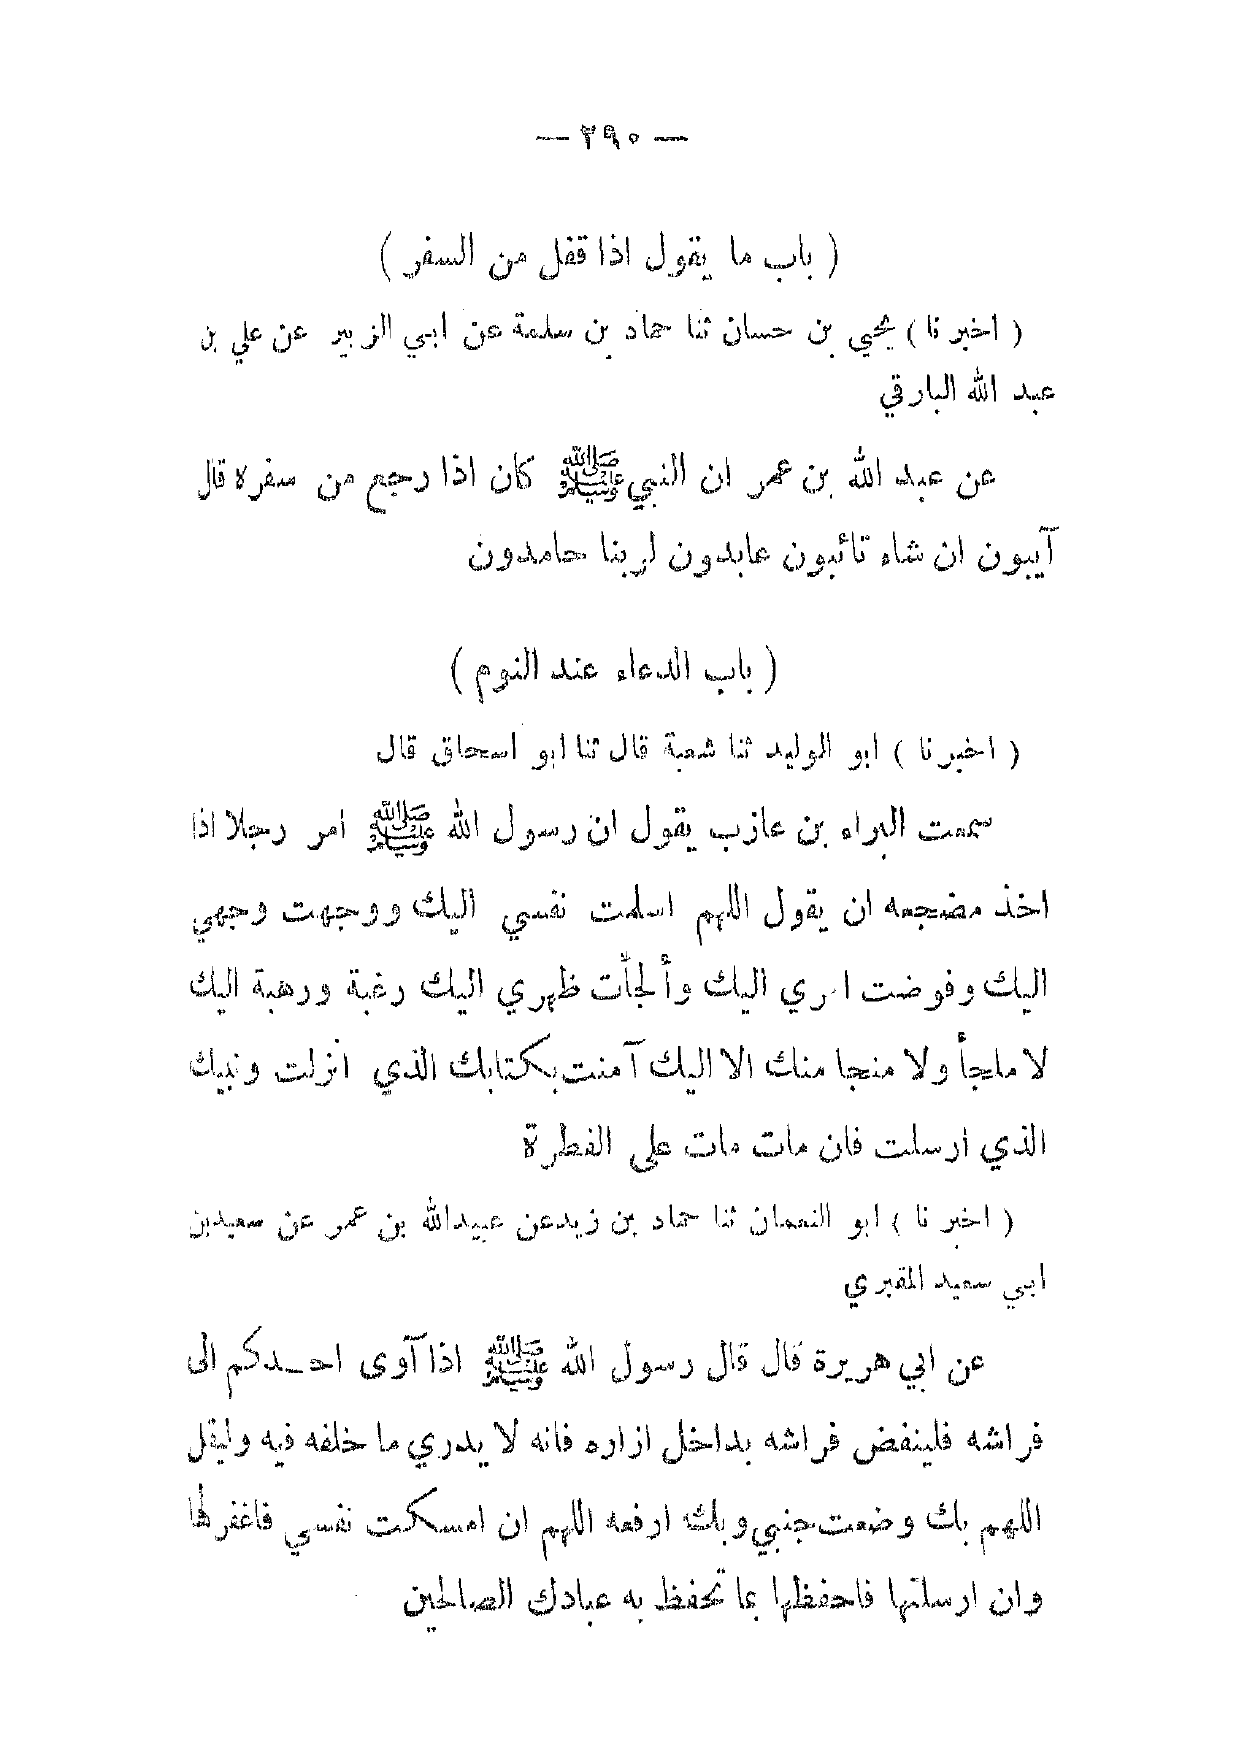 — ٢٩٠ —
( باب ما يقول اذا قفل من السفر )
( اخبر نا ) يحيي بن حسان ثنا حماد بن سلمة عن ابي الزبير عن علي بن
عبد الله البارقي
عن عبد الله بن عمر ان النبي ﷺ كان اذا رجع من سفره قال
آيبون ان شاء تائبون عابدون لربنا حامدون
( باب الدعاء عند النوم )
( اخبرنا ) ابو الوليد ثنا شعبة قال ثنا ابو اسحاق قال
سمعت البراء بن عازب يقول ان رسول الله ﷺ امر رجلا اذا
اخذ مضجعه ان يقول اللهم اسلمت نفسي اليك ووجهت وجهي
اليك وفوضت امري اليك وألجأت ظهري اليك رغبة ورهبة اليك
لا ملجأ ولا منجا منك الا اليك آمنت بكتابك الذي انزلت ونبيك
الذي ارسلت فان مات مات على الفطرة
( اخبر نا ) ابو النعمان ثنا حماد بن زيد عن عبيد الله بن عمر عن سعيد بن
ابي سعيد المقبري
عن ابي هريرة قال قال رسول الله ﷺ اذا آوى احدكم الى
فراشه فلينفض فراشه بداخل ازاره فانه لا يدري ما خلفه فيه وليقل
اللهم بك وضعت جنبي وبك ارفعه اللهم ان امسكت نفسي فاغفر لها
وان ارسلتها فاحفظها بما تحفظ به عبادك الصالحين